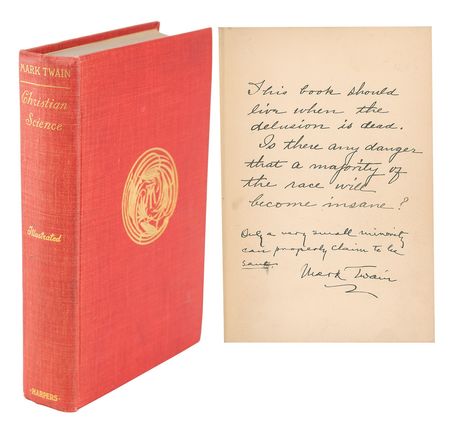 MARK TWAIN
Christian
Science
Illustrated
HARPERS
This book should
live when the
delusion is dead.
Is there any danger
that a majority of
the race will
become insane?
Only a very small minority
can properly claim to be
sane.
Mark Twain